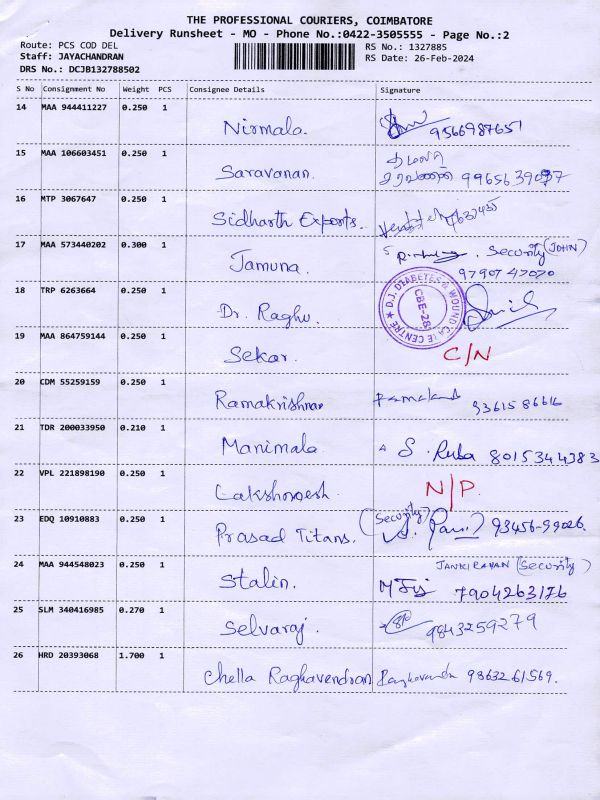 THE PROFESSIONAL COURIERS, COIMBATORE
Delivery Runsheet - MO - Phone No.:0422-3505555 - Page No.:2
Route: PCS COD DEL RS No.: 1327885
Staff: JAYACHANDRAN RS Date: 26-Feb-2024
DRS No.: DCJB132788502
S No Consignment No Weight PCS Consignee Details Signature
14 MAA 944411227 0.250 1
Nirmala. 9566987651
15 MAA 106603451 0.250 1
Saravanan. சரவணன்
16 MTP 3067647 0.250 1
Sidharth Exports.
17 MAA 573440202 0.300 1 Security (JOHN)
Jamuna. 9790747070
18 TRP 6263664 0.250 1
Dr. Raghu. D.I. DIABETES & WOUND CARE CENTRE
CBE-28
19 MAA 864759144 0.250 1
Sekar. C/N
20 CDM 55259159 0.250 1
Ramakrishnan 9361586616
21 TDR 200033950 0.210 1
Manimala. S. Ruba 8015344383
22 VPL 221898190 0.250 1
Lakshmesh. N/P.
23 EDQ 10910883 0.250 1 (Security)
Prasad Titans. 93456-99026.
24 MAA 944548023 0.250 1 JANKIRAMAN (Security)
Stalin. 7904263176
25 SLM 340416985 0.270 1
Selvaraj. 9843259279
26 HRD 20393068 1.700 1
Chella Raghavendran 9863261569.